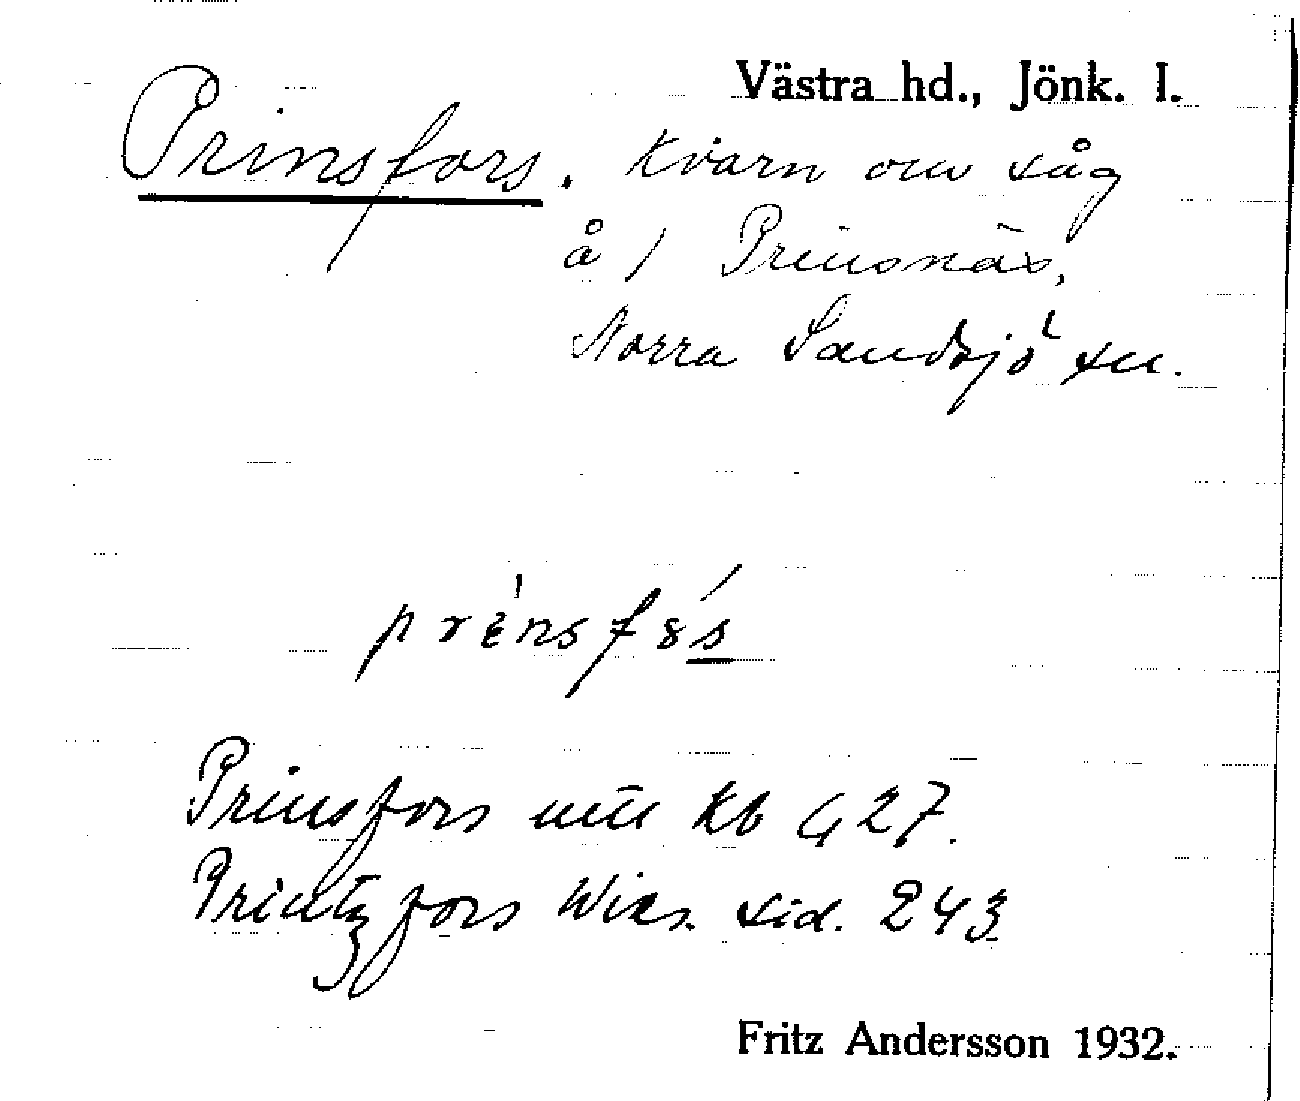 Västra hd., Jönk. l.
Prinsfors. Kvarn ou såg
å / Prinsnäs,
Norra Sandsjö sn.
Prinsfors Kb 427.
Printzfors Wies. sid. 243
Fritz Andersson 1932.